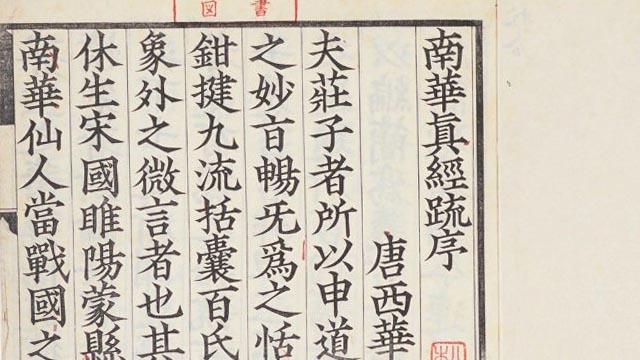 南華眞經疏序
唐西華
夫莊子者所以申道
之妙㫖暢旡爲之恬
鉗揵九流括囊百氏
象外之微言者也其
休生宋國睢陽蒙縣
南華仙人當戰國之
書
図